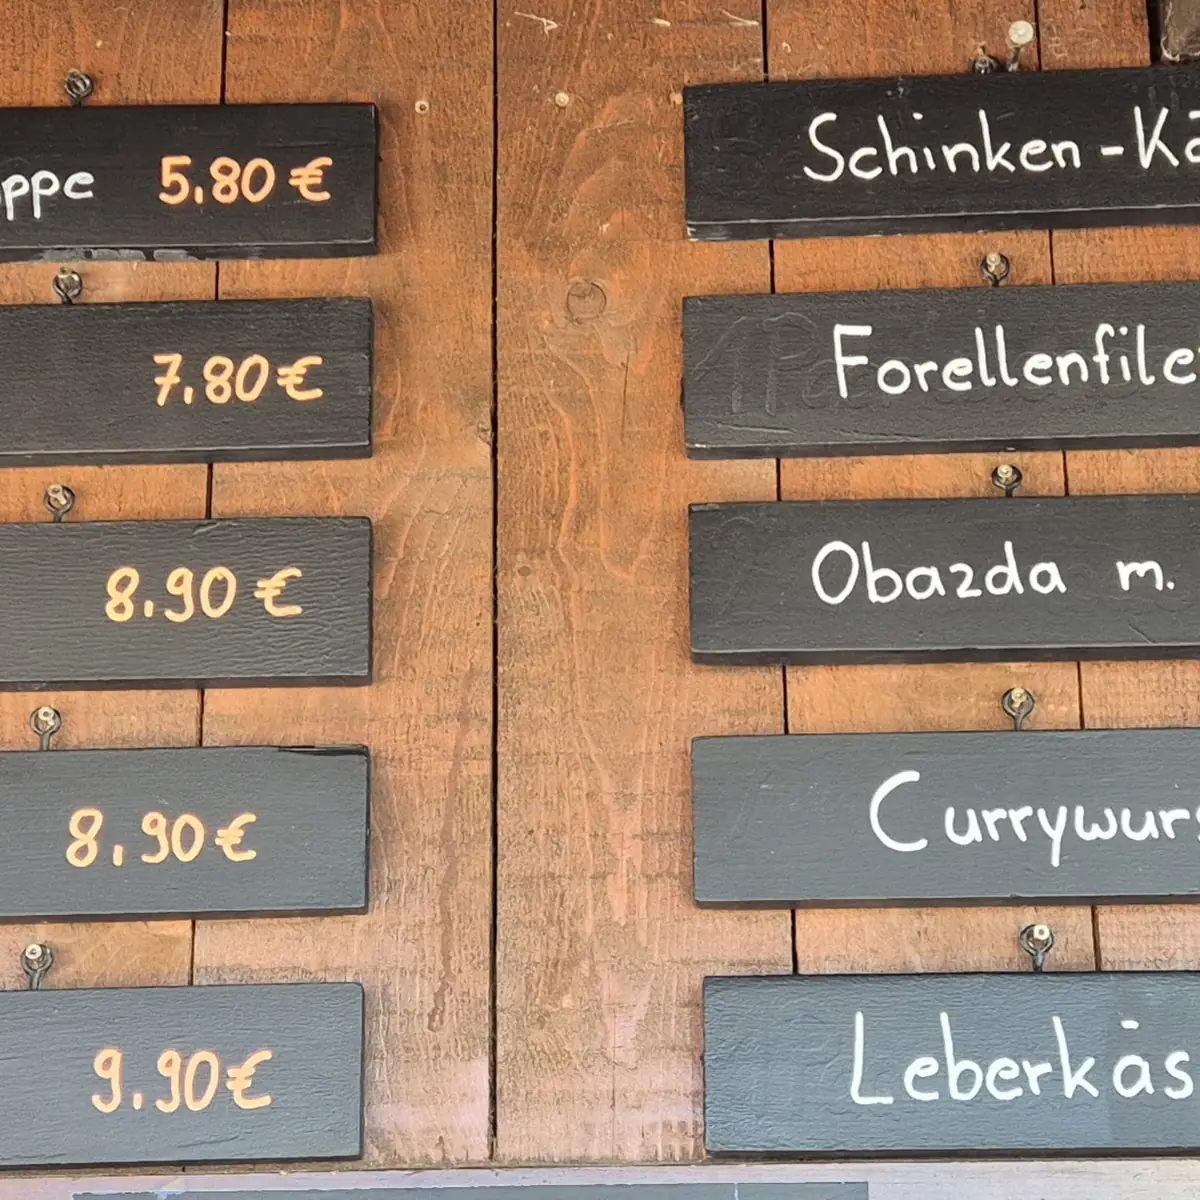 5.80 €
7.80 €
8.90 €
8.90 €
9.90 €
Schinken-Kä
Forellenfile
Obazda m.
Currywurs
Leberkäs